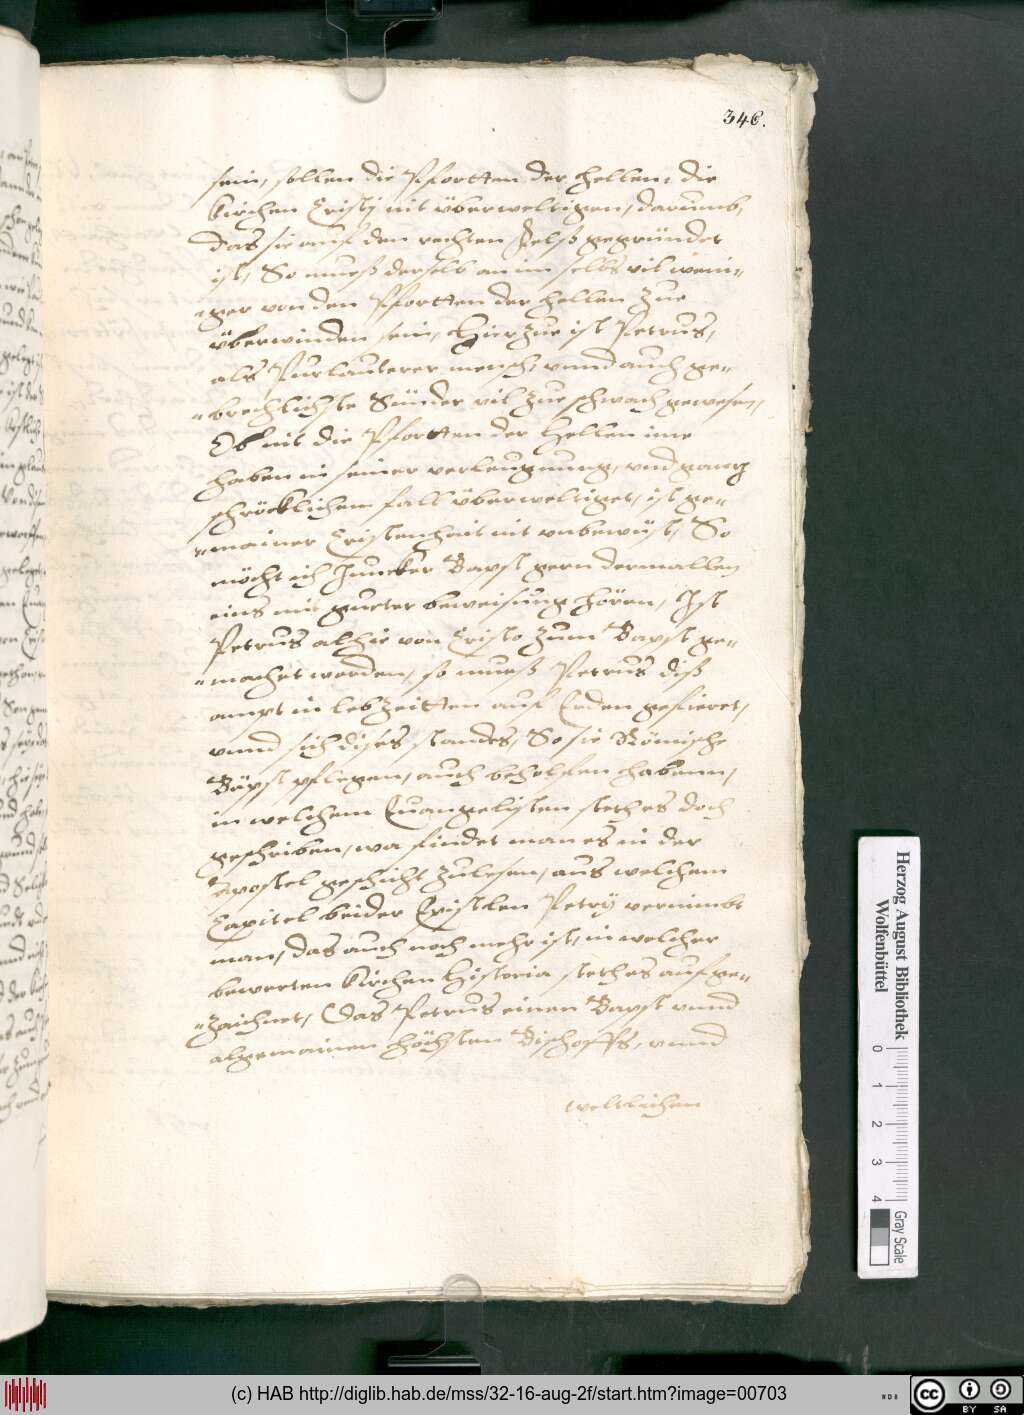 346.
sein, sollen die Pfortten der hellen, die
Kirchen Cristj nit überweltigen, darumb,
das sie auf den rechten Felß gegründet
ist, So mueß derselb an im selbs vil weni-
-ger von den Pfortten der hellen zue
überwinden sein, Hierzue ist Petrus,
als Purlauterer mensch, vnnd auch ge-
-brechlichste Sünder vil zue schwach gewesen,
Ob nit die Pfortten der Hellen ine
haben in seiner verleugnung, vnd gantz
schröcklichem fall überweltiget, ist ge-
-mainer Cristenhait nit vnbewüst, So
möcht ich Juncker Bapst gern dermallen
eins mit gueter beweisung hören, Ist
Petrus alhie von Cristo zum Bapst ge-
-machet worden, so mueß Petrus diß
ampt in lebzeitten auf Erden gefieret,
vnnd sich dises standes, So sie Römische
Bäpst pflegen, auch beholffen habenn,
in welchem Euangelisten steth es doch
geschriben, wa findet man es in der
Apostel geschicht zulesen, aus welchem
Capitel beider Epistlen Petry vernimbt
man, das auch noch mehr ist, in welcher
bewerten Kirchen Historia steth es aufge-
-zaichnet, Das Petrus einen Bapst vnnd
algemainen höchsten Bischoffs, vnnd
weltlichen
Herzog August Bibliothek
Wolfenbüttel
0 1 2 3 4
Gray Scale
(c) HAB http://diglib.hab.de/mss/32-16-aug-2f/start.htm?image=00703
WDB
cc BY SA